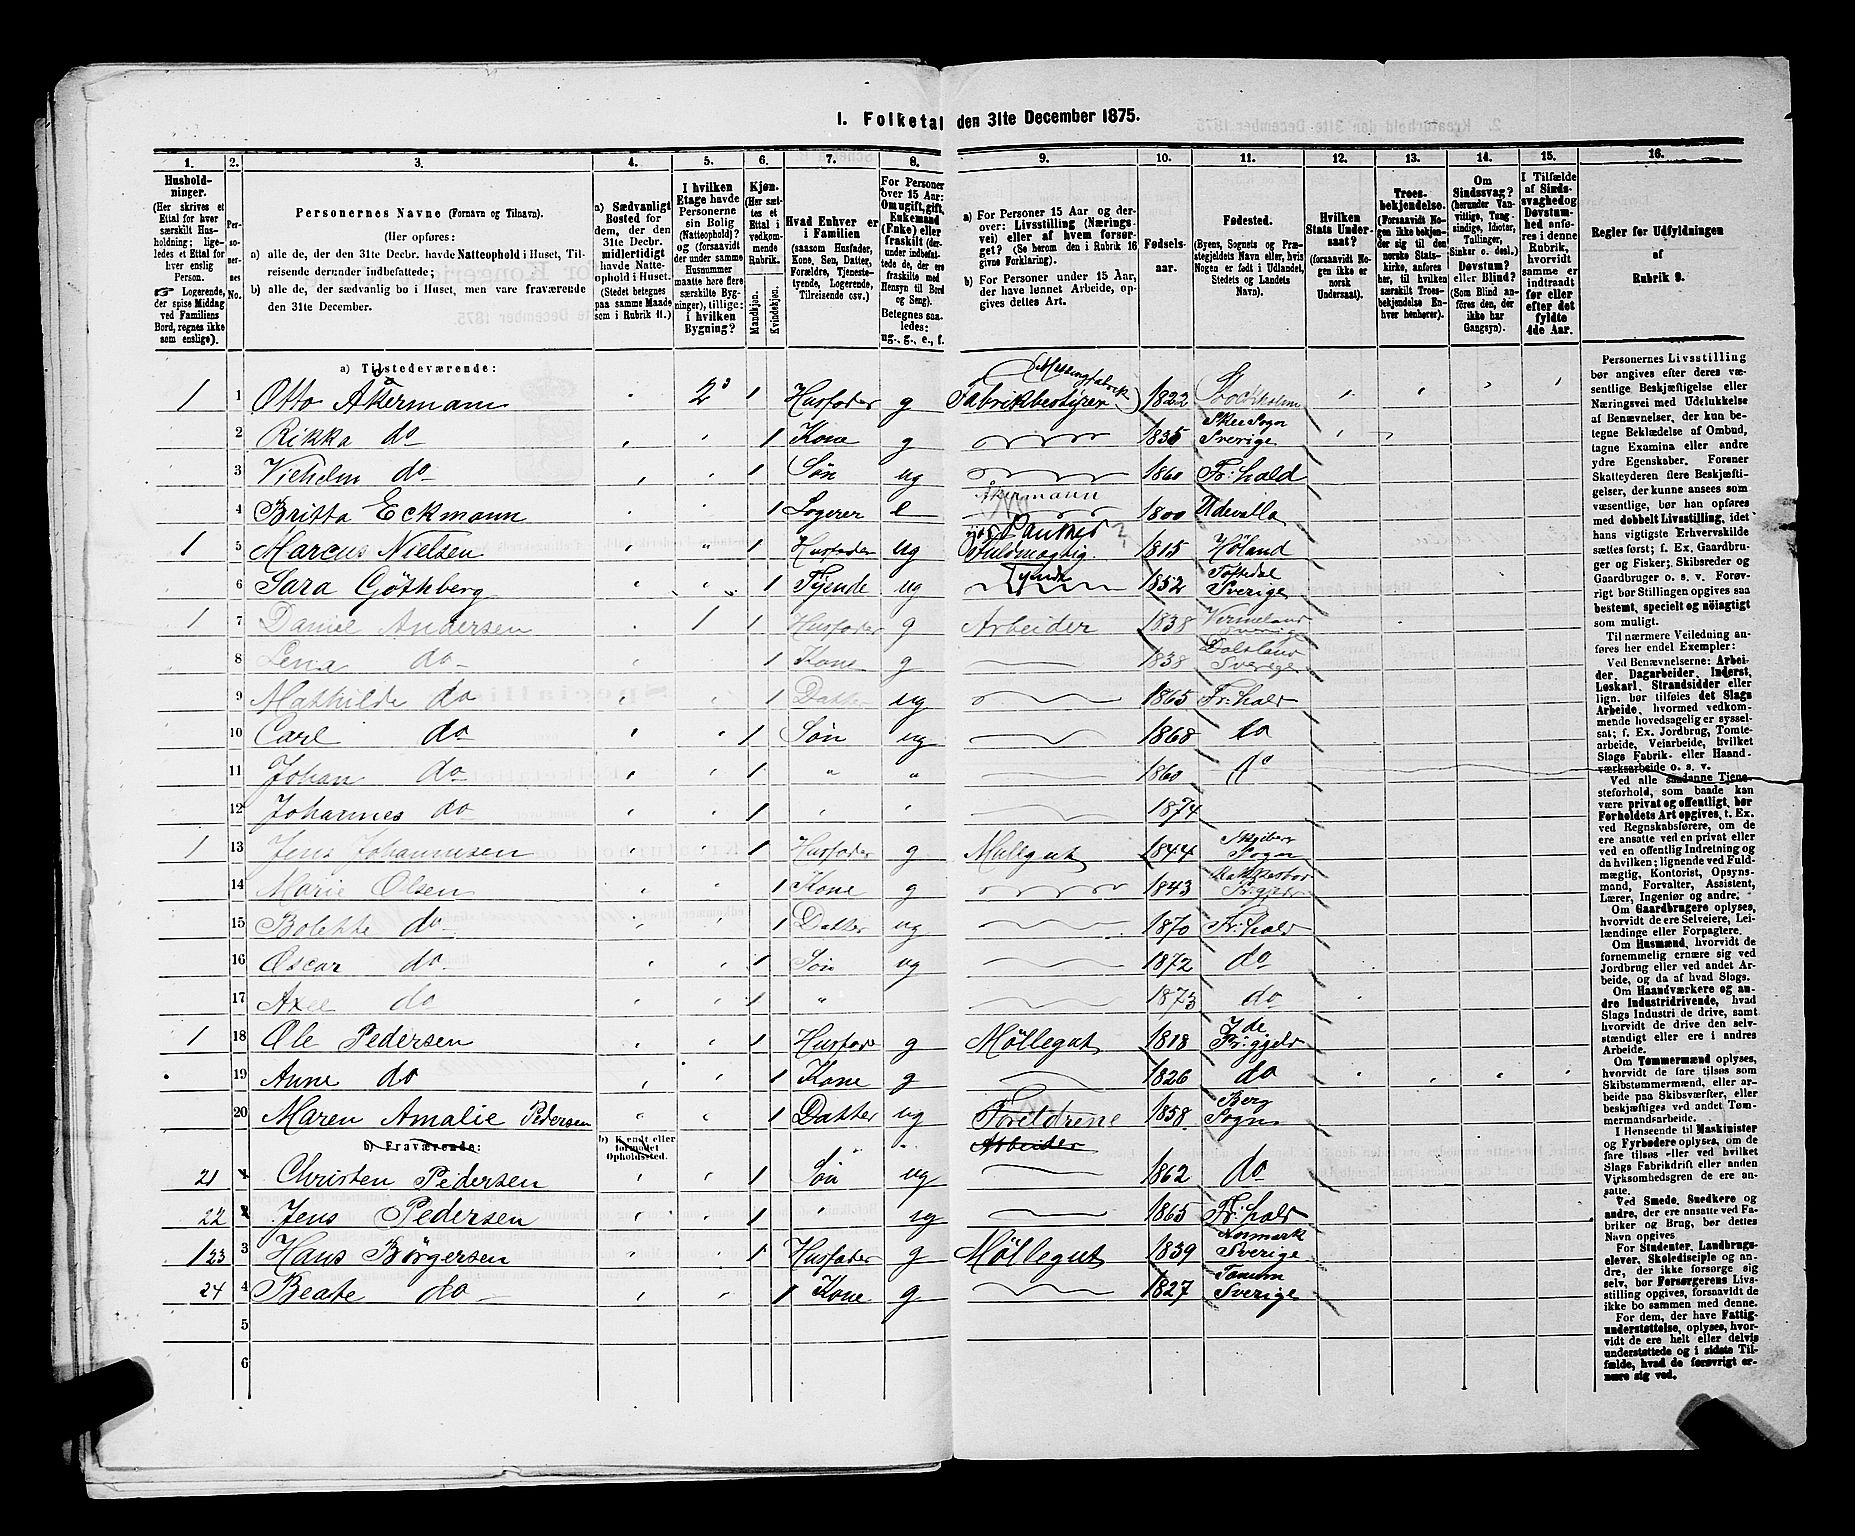 1. Folketal den 31te December 1875.
1. 2. 3. 4. 5. 6. 7. 8. 9. 10. 11. 12. 13. 14. 15. 16.
Husholdninger.
(Her skrives et
Ettal for hver
særskilt Husholdning;
ligeledes et Ettal for
hver enslig
Person.
Logerende,
der spise Middag
ved Familiens
Bord, regnes ikke
som enslige).
Personernes No.
Personernes Navne (Fornavn og Tilnavn).
(Her opføres:
a) alle de, der den 31te Decbr. havde Natteophold i Huset, Tilreisende
derunder indbefattede;
b) alle de, der sædvanlig bo i Huset, men vare fraværende
den 31te December.
a) Sædvanligt
Bosted for
dem, der den
31te Decbr.
midlertidigt
havde Natteophold
i Huset.
(Stedet betegnes
paa samme Maade
som i Rubrik 11.)
I hvilken
Etage havde
Personerne
sin Bolig
(Natteophold)?
og (forsaavidt
der under samme
Husnummer
maatte høre flere
særskilte Bygninger),
tillige:
i hvilken
Bygning?
Kjøn.
(Her sættes
et Ettal
i vedkommende
Rubrik.
Mandkjøn.
Kvindekjøn.
Hvad Enhver er
i Familien
(saasom Husfader,
Kone, Søn, Datter,
Forældre, Tjenestetyende,
Logerende,
Tilreisende osv.)
For Personer
over 15 Aar:
Om ugift, gift,
Enkemand
(Enke) eller
fraskilt (derunder
indbefattede
de, der ere
fraskilte med
Hensyn til Bord
og Seng).
Betegnes saaledes:
ug., g., e., f.
a) For Personer 15 Aar og derover:
Livsstilling (Næringsvei)
eller af hvem forsørget?
(Se herom den i Rubrik 16
givne Forklaring).
b) For Personer under 15 Aar,
der have lønnet Arbeide, opgives
dettes Art.
Fødselsaar.
Fødested.
(Byens, Sognets og Præstegjeldets
Navn eller, hvis
Nogen er født i Udlandet,
Stedets og Landets
Navn).
Hvilken
Stats Undersaat?
(forsaavidt Nogen
ikke er
norsk
Undersaat).
Troesbekjendelse.
(Forsaavidt Nogen
ikke bekjender
sig til den
norske Statskirke,
anføres
her særskilt Troesbekjendelse
Enhver
henhører).
Om
Sindssvag?
(herunder Vanvittige,
Tungsindige,
Idioter,
Tullinger,
Sinker o. desl.)
Døvstum?
eller Blind?
(Som Blind anføres
den, der
ikke har
Gangsyn).
I Tilfælde
af Sindssvaghed
og
Døvstumhed
anføres
i denne
Rubrik,
hvorvidt
samme er
indtraadt
før eller
efter det
fyldte
4de Aar.
Regler for Udfyldningen
af
Rubrik 9.
a) Tilstedeværende:
1 1 Otto Åkermann 2 1 Husfader g Fabrikbestyrer (Messingfabrik) 1822 Stockholm
2 Rikka do 1 Kone g 1835 Skee Sogn Sverige
3 Vilhelm do 1 Søn ug 1860 Fr: hald
4 Britta Eckmann 1 Logerer e Åkermann 1800 Udevalla
1 5 Marcus Nielsen 1 Husfader ug Fuldmægtig 1815 Høland
6 Sara Göthberg 1 Tjende ug Tyende 1852 Toftedal Sverige
1 7 Daniel Andersen 1 1 Husfader g Arbeider 1838 Vermeland Sverige
8 Lena do 1 Kone g 1838 Dalsland Sverige
9 Mathilde do 1 Datter ug 1865 Fr: hald
10 Carl do 1 Søn ug 1868 do
11 Johan do 1 " " 1860 do
12 Johannes do 1 " " 1874
1 13 Jens Johannesen 1 Husfader g Møllegut 1844 Skjeberg Sogn
14 Marie Olsen 1 Kone g 1843
15 Bolette do 1 Datter ug 1870 Fr: hald
16 Oscar do 1 Søn ug 1872 do
17 Axel do 1 " 1873 do
1 18 Ole Pedersen 1 Husfader g Møllegut 1818 Ide Pr: gjeld
19 Anne do 1 Kone g 1826 do
20 Maren Amalie Pedersen 1 Datter ug Foreldrene 1858 Berg Sogn
b) Fraværende:
b) Kjendt eller
formodet
Opholdssted.
Arbeider
21 Christen Pedersen 1 Søn ug 1862 do
22 Jens Pedersen 1 " ug 1865 Fr: hald
1 23 3 Hans Børgersen 1 Husfader g Møllegut 1839 Sverige
24 4 Beate do 1 Kone g 1827 Tanum Sverige
5
6
Personernes Livsstilling
bør angives efter deres væsentlige
Beskjæftigelse eller
Næringsvei med Udelukkelse
af Benævnelser, der kun betegne
Bekledelse af Ombud,
tagne Examina eller andre
ydre Egenskaber. Forener
Skatteyderen flere Beskjæftigelser,
der kunne ansees som
væsentlige, bør han opføres
med dobbelt Livsstilling, idet
hans vigtigste Erhvervskilde
sættes først; f. Ex. Gaardbruger
og Fisker; Skibsreder og
Gaardbruger o. s. v. Forøvrigt
bør Stillingen opgives saa
bestemt, specielt og nöiagtigt
som muligt.
Til nærmere Veiledning anføres
her endel Exempler:
Ved Benævnelserne: Arbeider,
Dagarbeider, Inderst,
Løskarl, Strandsidder eller
lign. bør tilføies det Slags
Arbeide, hvormed vedkommende
hovedsagelig er sysselsat;
f. Ex. Jordbrug, Tomtearbeide,
Veiarbeide, hvilket
Slags Fabrik- eller Haandværksarbeide
o. s. v.
Ved alle saadanne Tjenesteforhold,
som baade kan
være privat og offentligt, bør
Forholdets Art opgives, t. Ex.
ved Regnskabsførere, om de
ere ansatte ved en privat eller
ved en offentlig Indretning og
da hvilken; lignende ved Fuldmægtig,
Kontorist, Opsynsmand,
Forvalter, Assistent,
Lærer, Ingeniør og andre.
Om Gaardbrugere oplyses,
hvorvidt de ere Selveiere, Leilændinge
eller Forpagtere.
Om Husmænd, hvorvidt de
fornemmelig ernære sig ved
Jordbrug eller ved andet Arbeide,
og da af hvad Slags.
Om Haandværkere og andre
Industridrivende, hvad
Slags Industri de drive, samt
hvorvidt de drive den selvstændigt
eller ere i andres
Arbeide.
Om Tømmermænd oplyses,
hvorvidt de fare tilsøs som
Skibstømmermænd, eller arbeide
paa Skibsværfter, eller
beskjæftiges ved andet Tømmermandsarbeide.
I Henseende til Maskinister
og Fyrbødere oplyses, om de
fare tilsøs eller ved hvilket
Slags Fabrikdrift eller anden
Virksomhedsgren de ere ansatte.
Ved Smede, Snedkere og
andre, der ere ansatte ved Fabriker
og Brug, bør dettes
Navn opgives.
For Studenter, Landbrugselever,
Skoledisciple og andre,
der ikke forsørge sig
selv, bør Forsørgerens Livsstilling
opgives, forsaavidt de
ikke bo sammen med denne.
For dem, der have Fattigunderstøttelse,
oplyses, hvorvidt
de ere helt eller delvis
understøttede og i sidste Tilfælde,
hvad de forøvrigt ernære
sig ved.